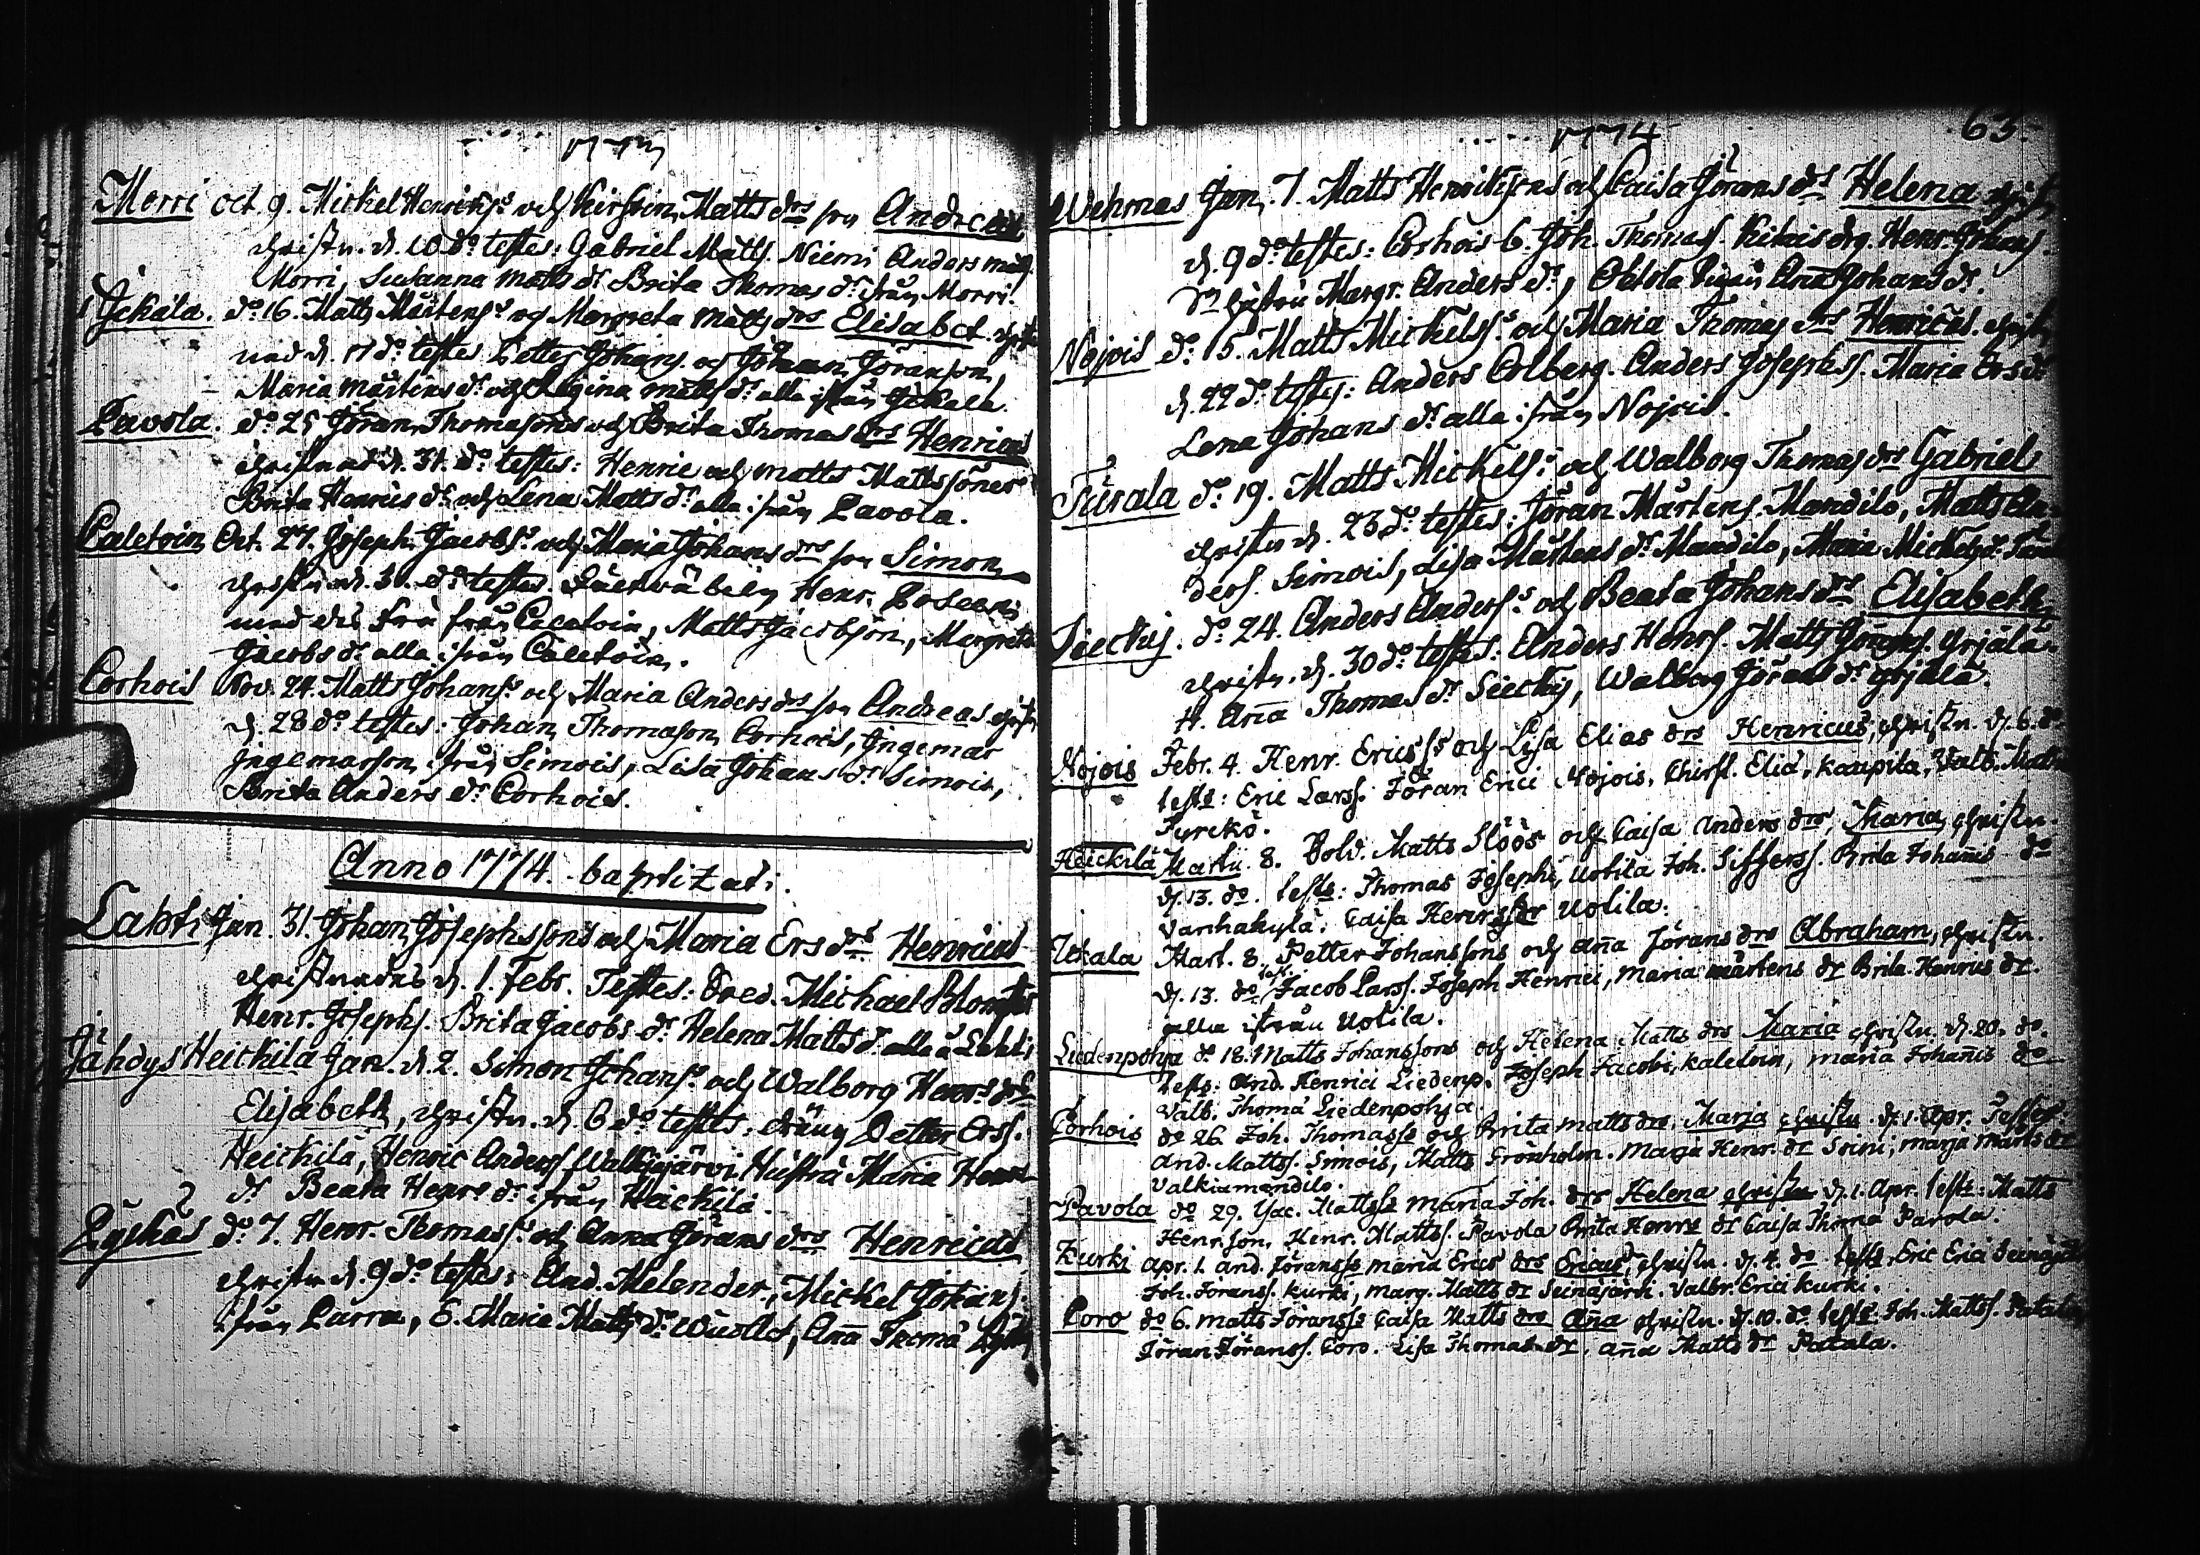 1773
Morri oct. 9. Mickel Henrikss. och Kirstin Matts drs son Andreas
christn. d. 10 do testes: Gabriel Matts. Niemi Anders
Morri, Susanna Matts dr Brita Thomas dr från Morri.
Jckala. do 16. Matts Mårtenss. og Margreta Matts drs Elisabet.
nad d. 17 do testes Petter Johans. og Johan Jöranson,
Maria Mårtens dr och Regina Matts dr alla ifrån Jckala.
Pavola. do 25 Jöran Thomasons och Brita Thomas drs Henricus
christnad d. 31. do testes: Henric och Matts Mattssöner
Brita Henrics dr och Lena Matts dr alla ifrån Pavola.
Caletoin Oct. 27. Joseph Jacobs. och Maria Johans drs son Simon
christnad. 31. do testes. Henr.
med dess fru från Caletoin, Matts Jacobson, Margreta
Jacobs dr alla ifrån Caletoin.
Corhois Nov. 24. Matts Johans. och Maria Anders drs son Andreas
d. 28 do testes: Johan Thomason Corhois, Ingemar
Ingemarson från Simois, Lisa Johans dr Simois,
Brita Anders dr Corhois.
Anno 1774. baptizati.
Lahti Jan. 31. Johan Josephssons och Maria Ers drs Henricus
christnades d. 1. Febr. Testes: Michael
Henr. Josephs. Brita Jacobs dr Helena Matts dr alla Lahti
Jähdys Heickilä Jan. d. 2. Simon Johans. och Walborg Henrs drs
Elisabeth, christn. d 6 do testes: dräng Petter Erss.
Heickilä, Henric Anderss Walkiajärvi Hustru Maria Henrs
dr Beata Henrs dr ifrån Heickilä.
do 7. Henr. Thomass. och Anna Jörans drs Henricus
christn d. 9 do testes: And. Melender, Mickel Johans.
ifrån Parra, E. Maria Matts dr, Aña Thomä
1774
63.
Wehmas Jan. 7. Matts Henrikssons och Caisa Jörans drs Helena
d. 9 do testes: Corhois b. Joh. Thomass. Henr. Johans.
hustru Margr. Anders dr, pigan Aña Johans dr.
Nojois do 15. Matts Mickelss. och Maria Thomas drs Henricus
d. 22 do testes: Anders Colberg. Anders Josephss. Maria Ers dr
Lena Johans dr alla ifrån Nojois.
do 19. Matts Mickelss. och Walborg Thomas drs Gabriel
christn d. 23 do testes: Jöran Mårtens. Mandilo, Matts An-
derss. Simois, Lisa Mårtens dr Mandilo, Maria Mickels dr
do 24. Anders Anderss. och Beata Johans drs Elisabeth
christn. d. 30 do testes: Anders Henrs. Matts
H. Aña Thomas dr, Walborg Jörans dr
Nojois Febr. 4. Henr. Ericss. och Lisa Elias drs Henricus, christn. d. 6. do
testes: Eric Larss. Jöran Erici Nojois, Chirst. Eliä, Kaupila, Valb. Matts
Heickilä Martii 8. Matts Slöös och Caisa Anders drs, Maria, christn.
d. 13. do. testes: Thomas Josephi, Uotila Joh. Siffers. Brita Johanis do
Vanhakylä, Caisa Henrss dr Uotila.
Mart. 8. Petter Johanssons och Aña Jörans drs Abraham, christn.
d. 13. do test: Jacob Larss. Joseph Henrici, Maria Mårtens dr Brita Henrics dr
alla ifrån Uotila.
Liedenpohja do 18. Matts Johanssons och Helena Matts drs Maria christn. d. 20. do.
testes: And. Henrici Liedenp. Joseph Jacobi, Kaletoin, Maria Johanis do
Valb. Thomä Liedenpohja.
Corhois do 26. Joh. Thomass. och Brita Matts drs. Marja christn. d. 1. Apr. Testes:
And. Mattss. Simois, Matts Grönholm. Marja Henr. dr Soini, Marja Mårts dr
Valkiamandilo.
Pavola do 29. Jac. Mattss. Maria Joh. drs Helena christn d. 1. Apr. testes: Matts
Henrson, Henr. Mattss. Pavola Brita Henrs dr Caisa Thomä Pavola.
Kurki Apr. 1. And. Jöranss. Maria Erics drs Ericus, christn. d. 4. do testes, Eric Erici
Joh. Jöranss. Kurki, Marg. Matts dr Seinäjärfi. Valbr. Erici Kurki.
Poro do 6. Matts Jöranss. Caisa Matts drs Aña christn. d. 10. do testes Joh. Mattss.
Jöran Jöranss. Poro. Lisa Thomas dr, Aña Matts dr Patala.